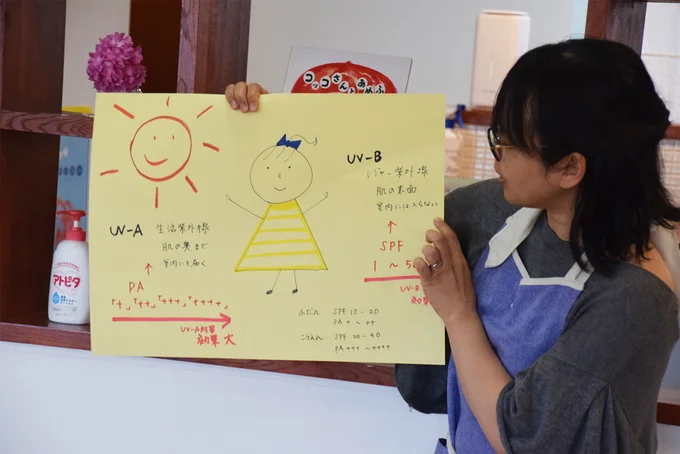 コッコさんとあめふり
UV-A 生活紫外線
肌の奥まで
室内にも届く
↑
PA
「+」「++」「+++」「++++」
UV-A対策
効果 大
UV-B
レジャー紫外線
肌の表面
室内には入らない
↑
SPF
1 ～ 5
UV-B
効果
ふだん SPF 10 - 20
PA + ～ ++
こうえん SPF 20 - 40
PA +++ ～ ++++
アトピタ